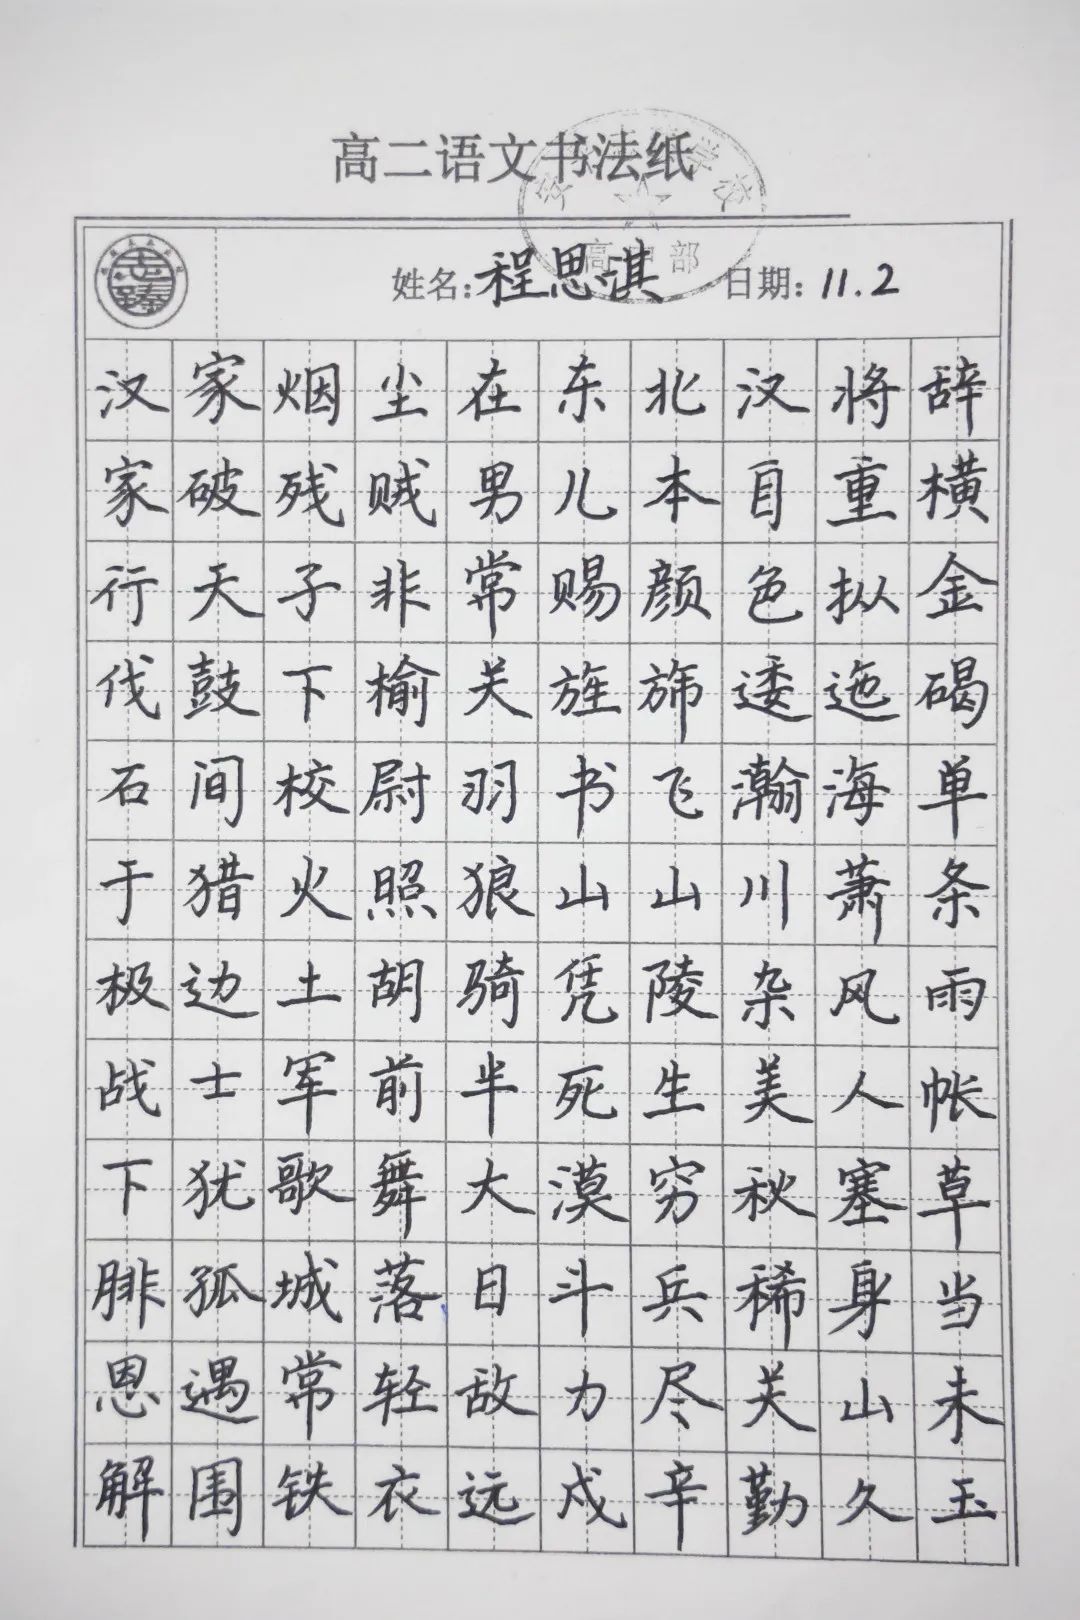 高二语文书法纸
学校
高中部
姓名:程思淇 日期:11.2
汉家烟尘在东北汉将辞
家破残贼男儿本自重横
行天子非常赐颜色摐金
伐鼓下榆关旌旆逶迤碣
石间校尉羽书飞瀚海单
于猎火照狼山山川萧条
极边土胡骑凭陵杂风雨
战士军前半死生美人帐
下犹歌舞大漠穷秋塞草
腓孤城落日斗兵稀身当
恩遇常轻敌力尽关山未
解围铁衣远戍辛勤久玉